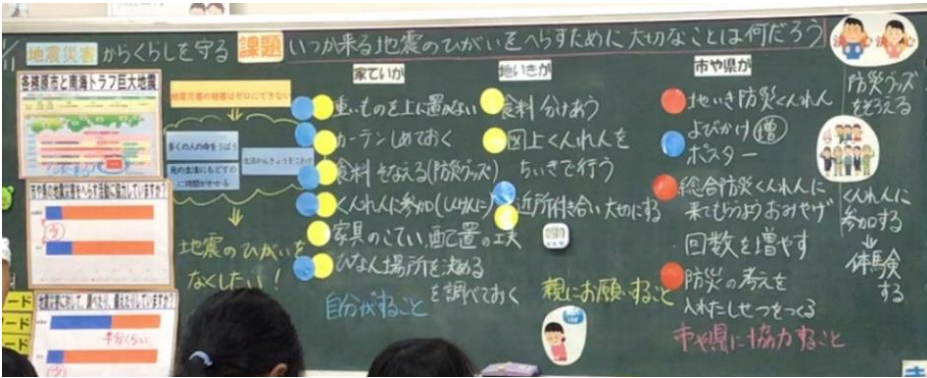 地震災害からくらしを守る 課題 いつか来る地震のひがいをへらすために大切なことは何だろう
各務原市と南海トラフ巨大地震
市や県の地震災害をへらす活動に協力していますか?
少
地震災害に対して、調べたり、備えたりしていますか?
半分くらい
少
地震災害の被害はゼロにできない
多くの人の命をうばう
元の生活にもどすのに時間がかかる
生活かんきょうをこわす
地震のひがいを
なくしたい!
家ていが
重いものを上に置かない
カーテンしめておく
食料 そなえる(防災グッズ)
くんれんに参加(しんけんに)
家具のこてい、配置の工夫
ひなん場所を決める
を調べておく
自分がすること
地いきが
食料 分けあう
図上くんれんを
ちいきで行う
近所付き合い大切にする
親にお願いすること
市や県が
地いき防災くんれん
よびかけ 増
ポスター
総合防災くんれんに
来てもらうようおみやげ
回数を増やす
防災の考えを
入れたしせつをつくる
市や県に協力すること
防災グッズ
をそろえる
くんれんに
参加する
体験
する